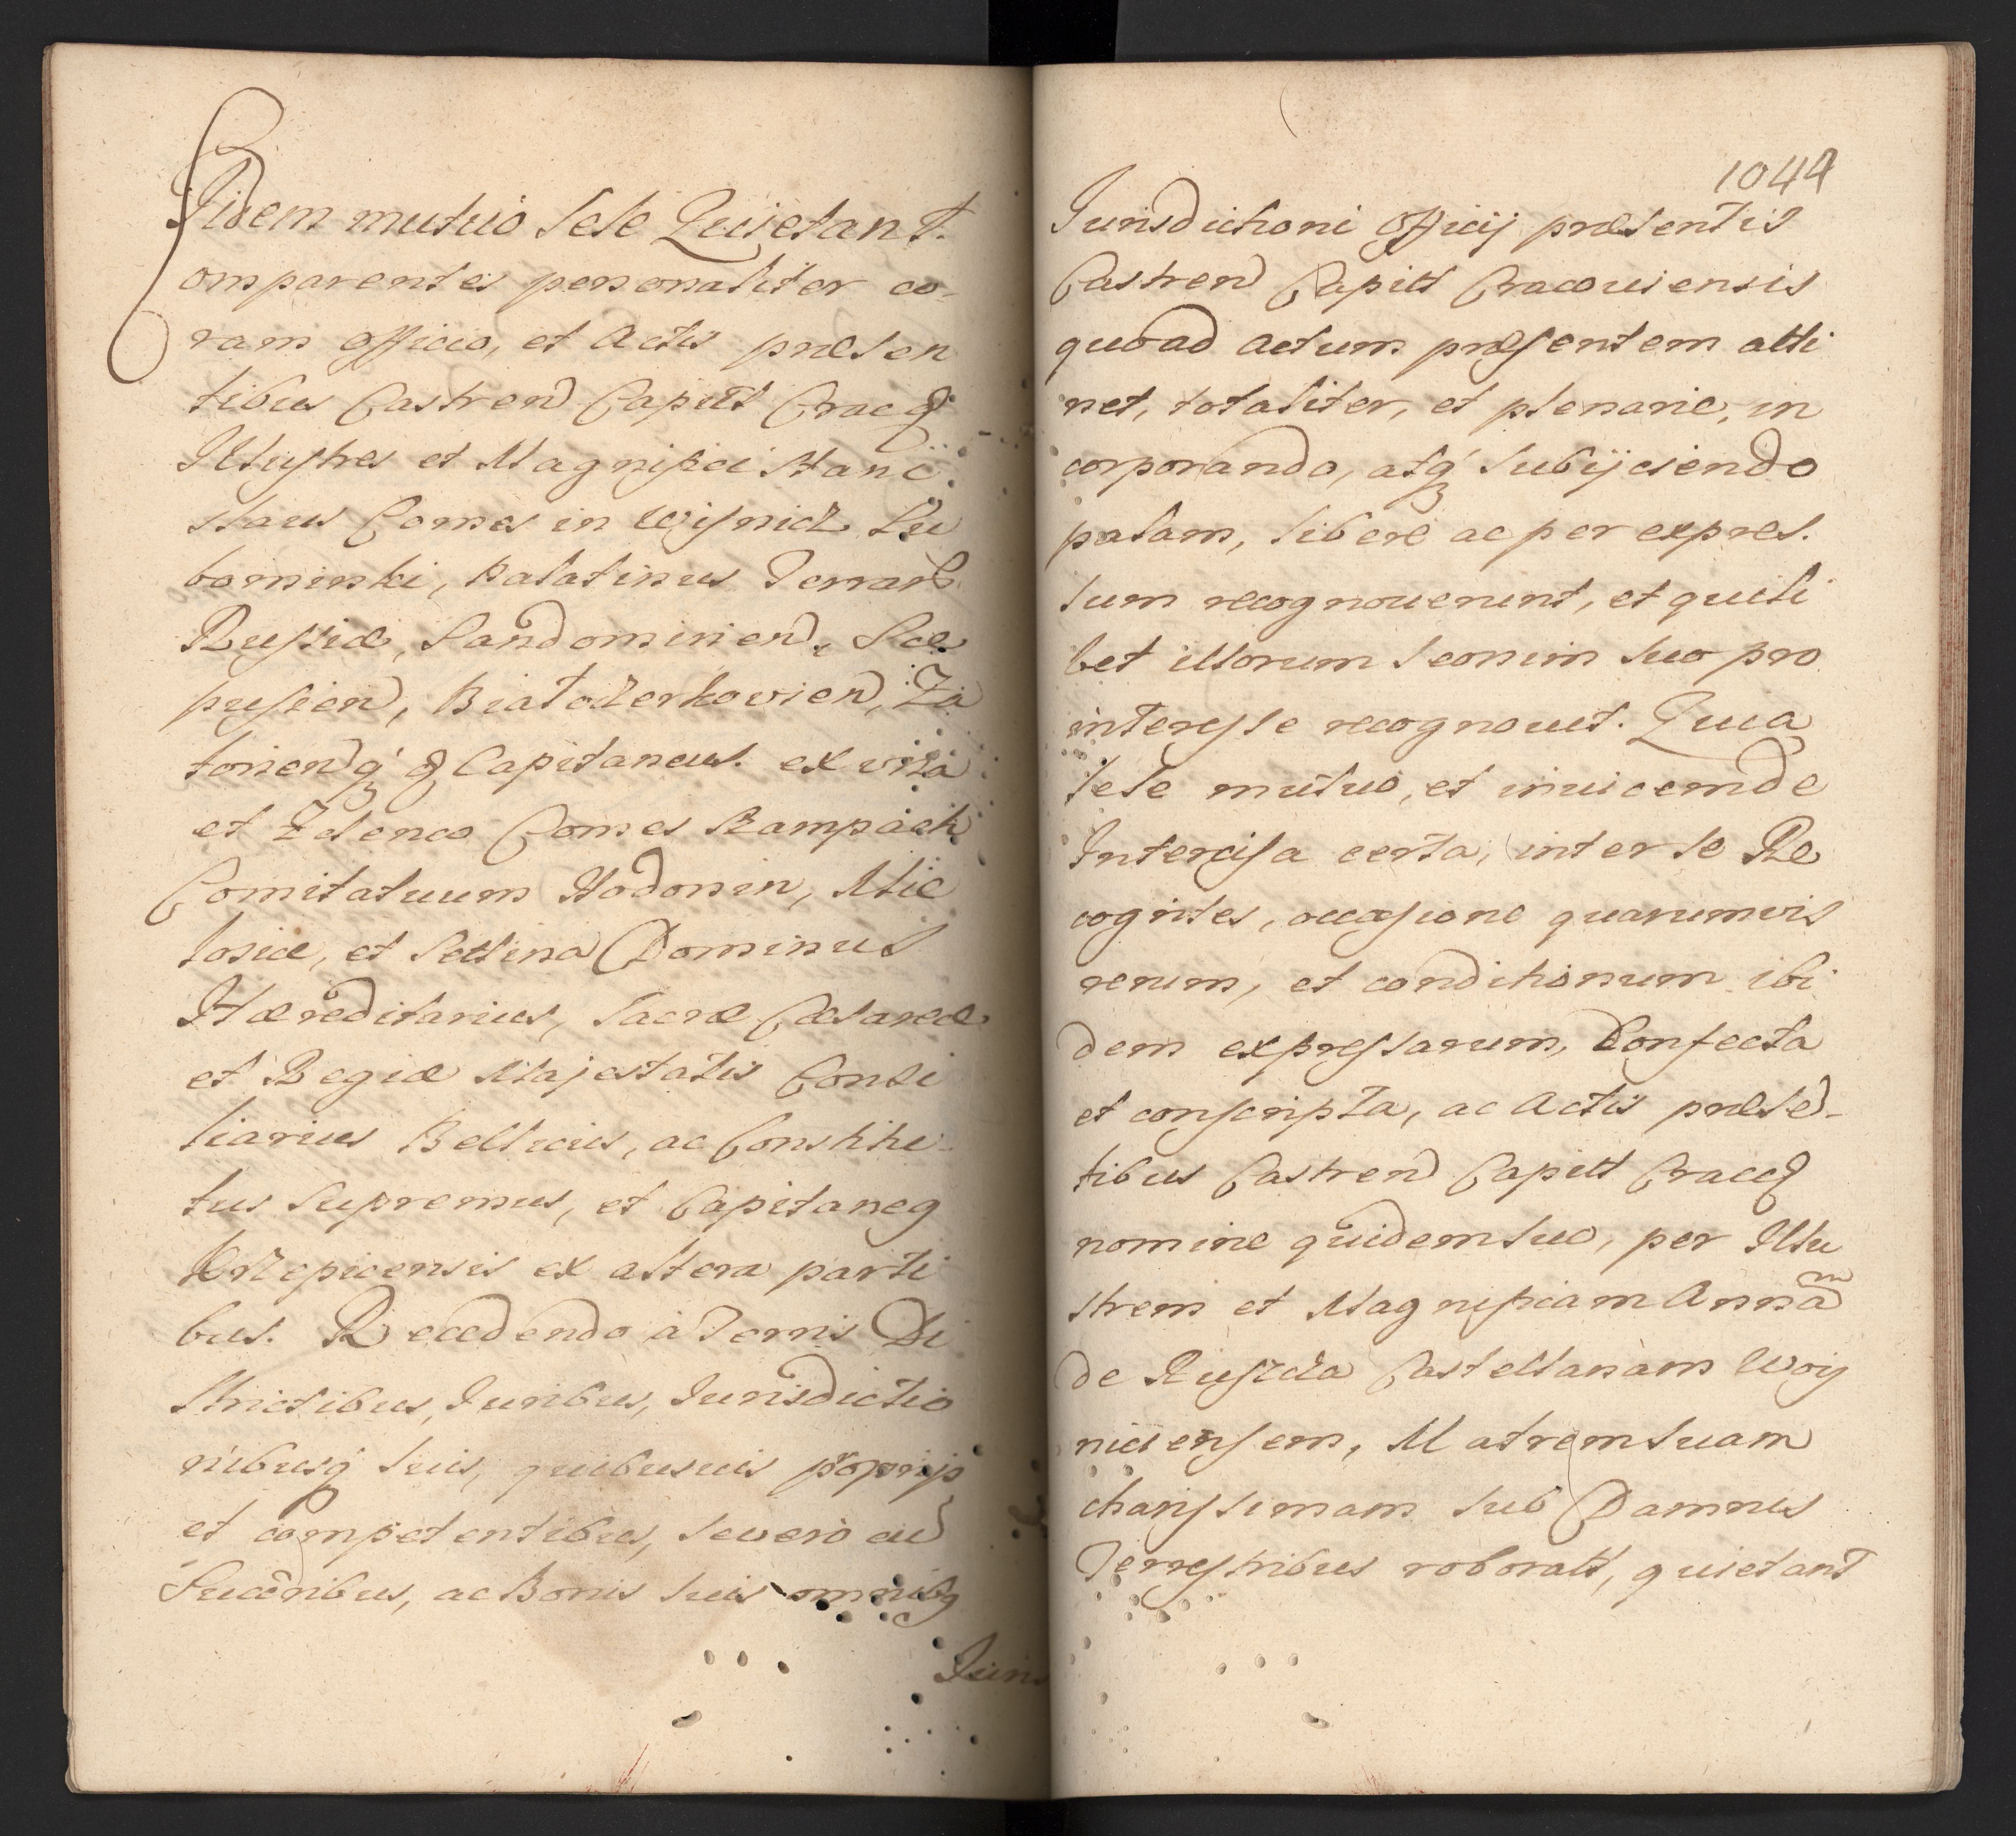 Iidem mutuo sese Quietant.
Comparentes personaliter co-
ram officio, et Actis præsen
tibus Castren Capitt Cracq
Illustres et Magnifici Stani
slaus Comes in Wisnicz Lu
bomirski, Palatinus Terrar
Russiæ, Sandomirien, Sce
pusien, Białocerkovien, Za
torienq3 q Capitaneus. ex una
et Zdenco Comes Kampach
Comitatuum Hodonin, Mie
losiæ, et Pettina Dominus
Hæreditarius, Sacræ Cæsareæ
et Regiæ Majestatis Consi
liarius Bellicus, ac Constitu-
tus Supremus, et Capitaneq
Krzepicensis ex altera parti
bus. Recedendo à Terris Di
strictibus, Juribus, Jurisdictio
nibusq suis, quibusuis proprijs
et competentibus, se vero cu
Succribus, ac Bonis suis omnibq
Juris
1044
Jurisdictioni Officij præsentis
Castren Capitt Cracouiensis
quoad actum præsentem atti
net, totaliter, et plenarie, in
corporando, atq3 subijciendo
palam, libere ac per expres.
sum recognouerunt, et quili
bet illorum seorsim suo pro
interesse recognouit. Quia
sese mutuo, et inuicem de
Intercisa certa, inter se Re
cogntes, occasione quarumvis
rerum, et conditionum ibi
dem expressarum, Confecta
et conscripta, ac Actis præse-
tibus Castren Capitt Cracq
nomine quidem suo, per Illu
strem et Magnificam Annam
de Ruszcza Castellanam Woij
nicensem, Matrem suam
charissimam sub Damnis
Terrestribus roboratt, quietant